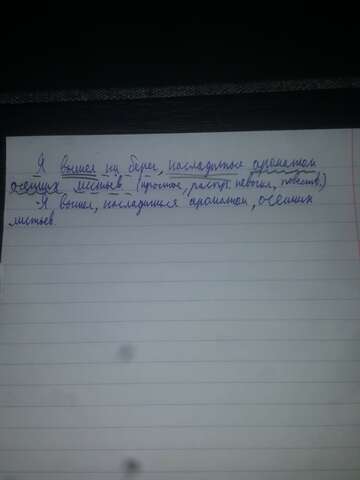 Я вышел на берег, насладиться ароматом
осенних листьев. (простое, распр. невоскл, повеств.)
-Я вышел, насладиться ароматом, осенних
листьев